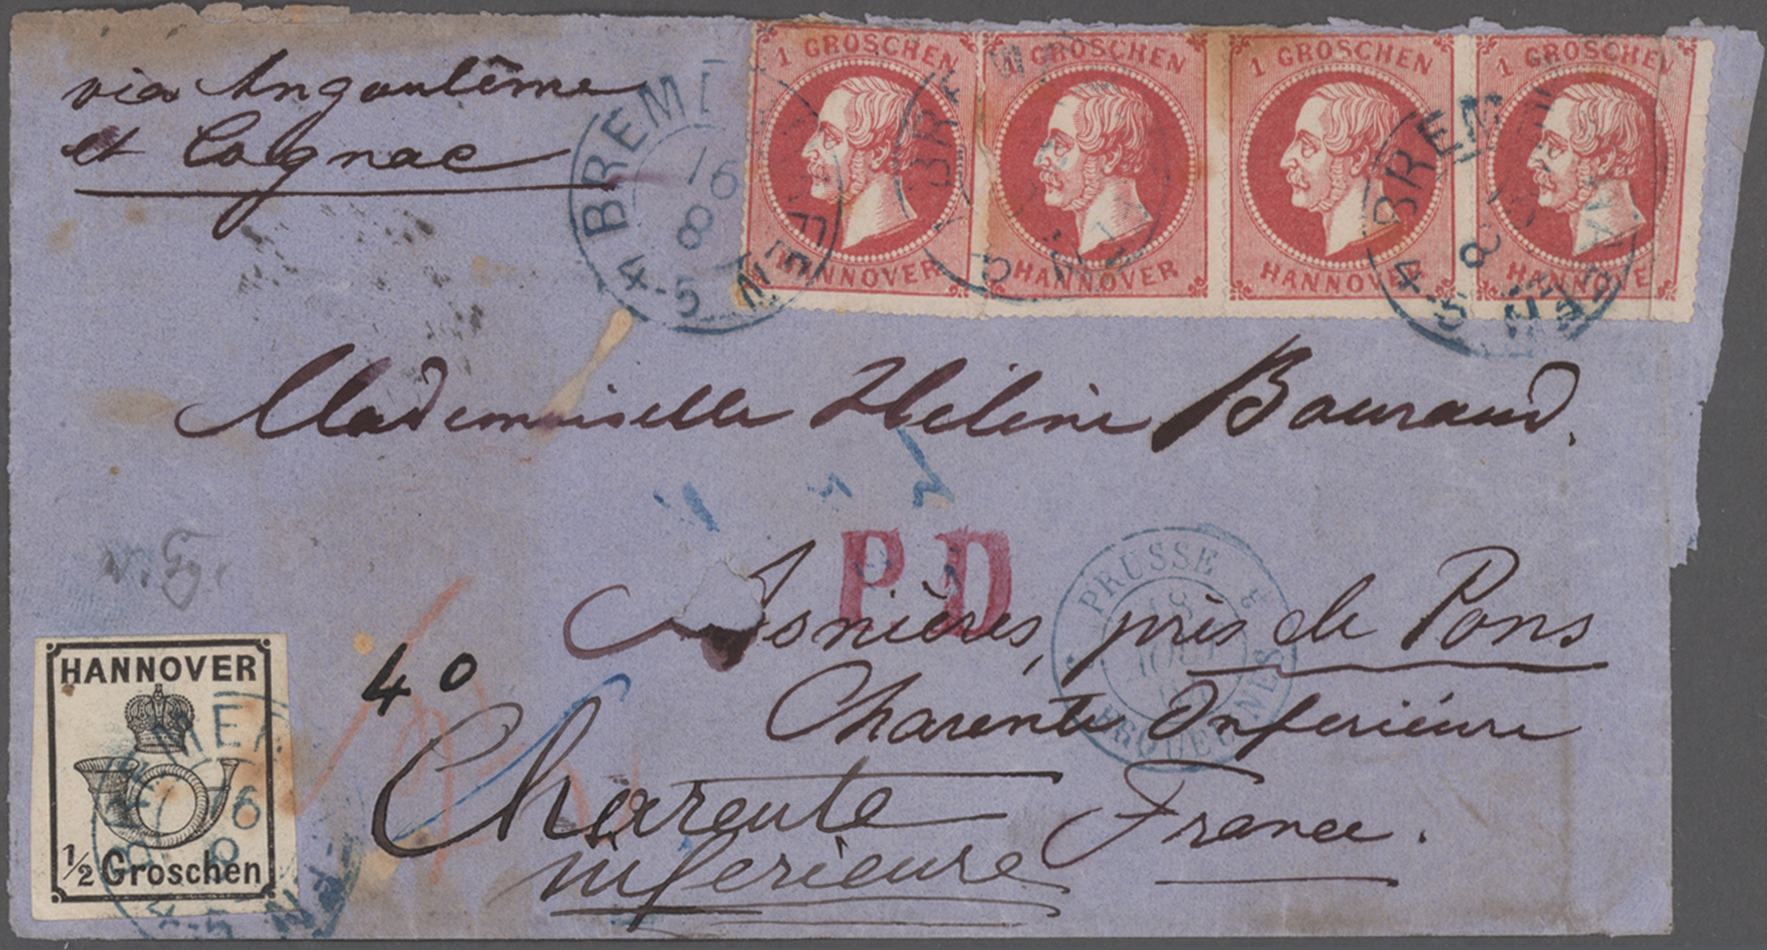 via Angoulême
et Cognac
1 GROSCHEN
HANNOVER
1 GROSCHEN
HANNOVER
1 GROSCHEN
HANNOVER
1 GROSCHEN
HANNOVER
BREMEN
16
8
4-5 N
BRE
BREM
8
4-5 N
Mademoiselle Hélène Bouraud.
P.D
PRUSSE
18
AOUT
ERQUELINES
Asnières, près de Pons
40
Charente Inferiéure
Charente
France.
inferieure
HANNOVER
1/2 Groschen
BREMEN
16
8
4-5 N